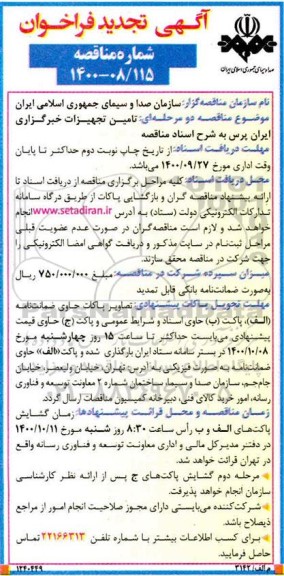 آگهی تجدید فراخوان
شماره مناقصه
۱۴۰۰-۰۸/۱۱۵
صدا و سیمای جمهوری اسلامی ایران
نام سازمان مناقصه‌گزار: سازمان صدا و سیمای جمهوری اسلامی ایران
موضوع مناقصه دو مرحله‌ای: تامین تجهیزات خبرگزاری
ایران پرس به شرح اسناد مناقصه
مهلت دریافت اسناد: از تاریخ چاپ نوبت دوم حداکثر تا پایان
وقت اداری مورخ ۱۴۰۰/۰۹/۲۷ می‌باشد.
محل دریافت اسناد: کلیه مراحل برگزاری مناقصه از دریافت اسناد تا
ارائه پیشنهاد مناقصه گران و بازگشایی پاکات از طریق درگاه سامانه
تدارکات الکترونیکی دولت (ستاد) به آدرس www.setadiran.ir انجام
خواهد شد و لازم است مناقصه گران در صورت عدم عضویت قبلی
مراحل ثبت‌نام در سایت مذکور و دریافت گواهی امضا الکترونیکی را
جهت شرکت در مناقصه محقق سازند.
میزان سپرده شرکت در مناقصه: مبلغ ۷۵۰/۰۰۰/۰۰۰ ریال
به‌صورت ضمانت‌نامه بانکی قابل تمدید
مهلت تحویل پاکات پیشنهادی: تصاویر پاکات حاوی ضمانتنامه
(الف)، پاکت (ب) حاوی اسناد و شرایط عمومی و پاکت (ج) حاوی قیمت
پیشنهادی می‌بایست حداکثر تا ساعت ۱۵ روز چهارشنبه مورخ
۱۴۰۰/۱۰/۰۸ در بستر سامانه ستاد ایران بارگذاری شده و پاکت «الف» حاوی
ضمانتنامه به صورت فیزیکی به آدرس: تهران، خیابان ولیعصر، خیابان
جام‌جم، سازمان صدا و سیما، ساختمان شماره ۲ معاونت توسعه و فناوری
رسانه، امور خرید کالای فنی، دبیرخانه کمیسیون مناقصات ارسال گردد.
زمان مناقصه و محل قرائت پیشنهادها: زمان گشایش
پاکت‌های الف و ب رأس ساعت ۸:۳۰ روز شنبه مورخ ۱۴۰۰/۱۰/۱۱
در دفتر مدیرکل مالی و اداری معاونت توسعه و فناوری رسانه واقع
در تهران قرائت خواهد شد.
مرحله دوم گشایش پاکت‌های ج پس از ارائه نظر کارشناسی
سازمان انجام خواهد پذیرفت.
شرکت‌کننده می‌بایستی دارای مجوز صلاحیت انجام امور از مراجع
ذیصلاح باشد.
برای کسب اطلاعات بیشتر با شماره تلفن ۲۲۱۶۶۳۱۳ تماس
حاصل فرمایید.
م الف/ ۳۱۴۲
۱۲۴۰۴۴۹